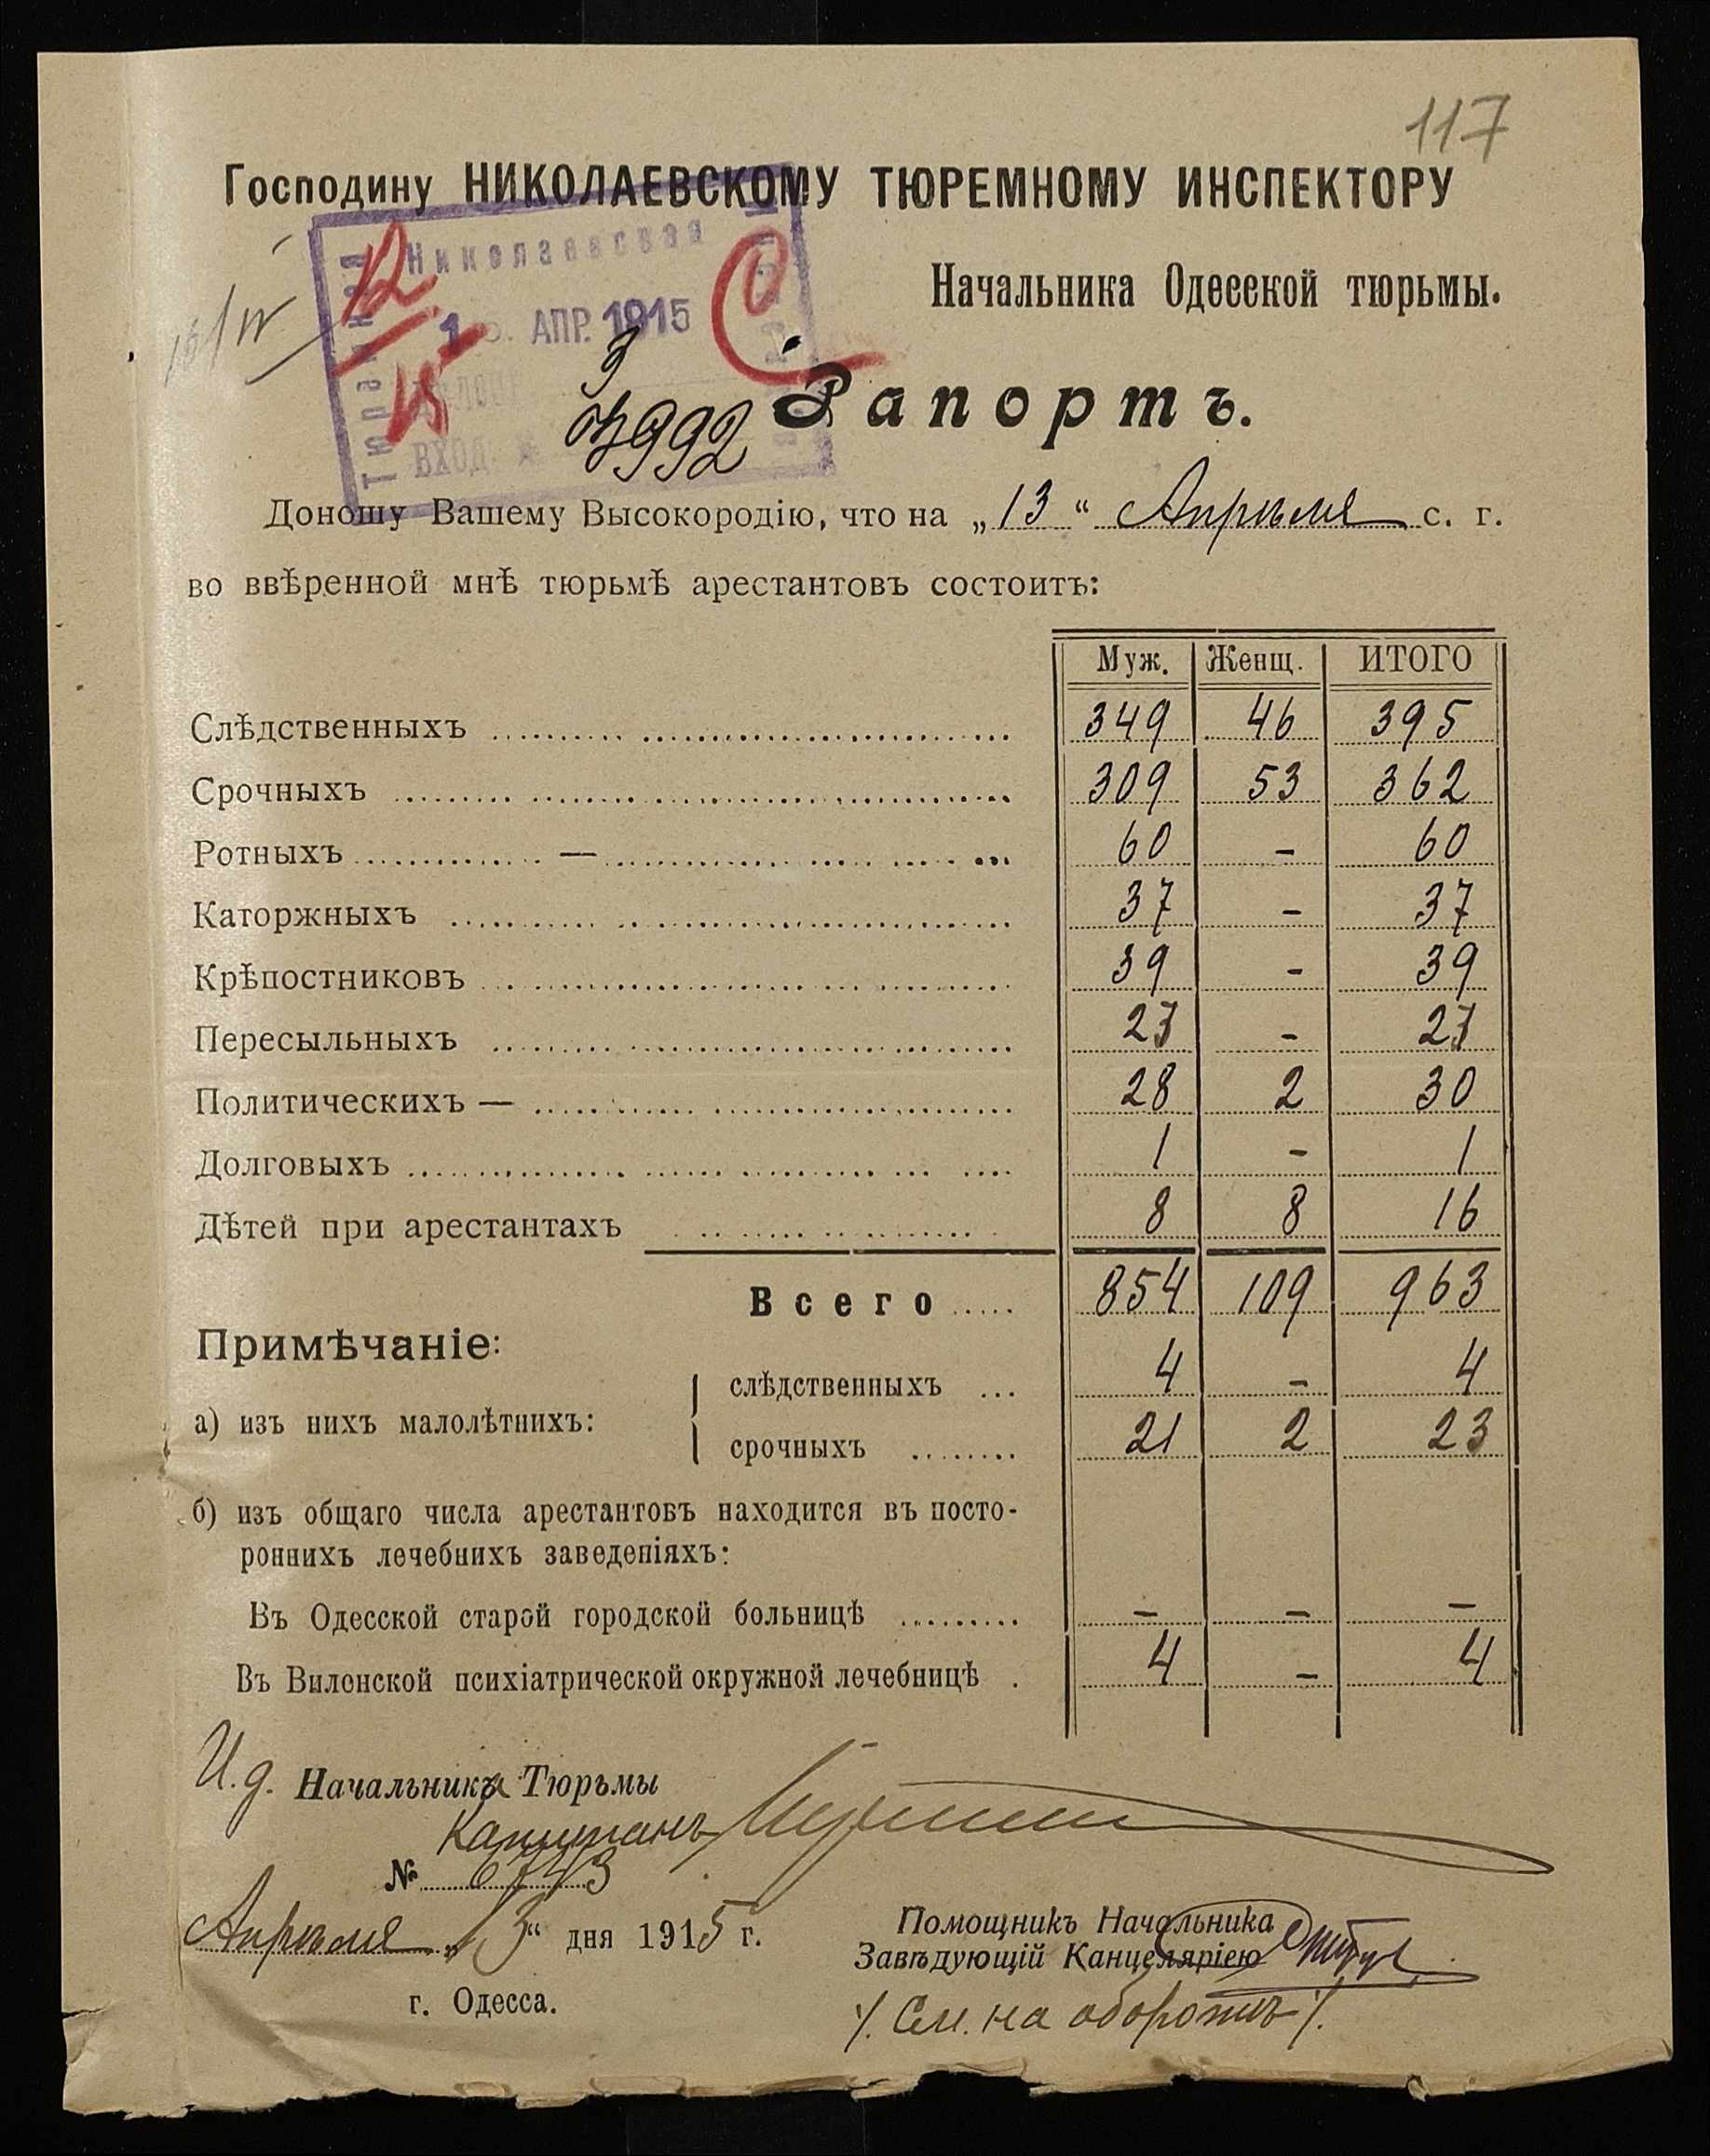 117
Господину НИКОЛАЕВСКОМУ ТЮРЕМНОМУ ИНСПЕКТОРУ
Николаевская
Тюремная
АПР. 1915
ВХОД. №
12
15
Начальника Одесской тюрьмы.
Рапортъ.
3992
Доношу Вашему Высокородію, что на „13“ Апрѣля с. г.
во ввѣренной мнѣ тюрьмѣ арестантовъ состоитъ:
Муж. Женщ. ИТОГО
Слѣдственныхъ 349 46 395
Срочныхъ 309 53 362
Ротныхъ — 60 - 60
Каторжныхъ 37 - 37
Крѣпостниковъ 39 - 39
Пересыльныхъ 23 - 23
Политическихъ — 28 2 30
Долговыхъ 1 - 1
Дѣтей при арестантахъ 8 8 16
Всего 854 109 963
Примѣчаніе:
а) изъ нихъ малолѣтнихъ:
слѣдственныхъ 4 - 4
срочныхъ 21 2 23
б) изъ общаго числа арестантовъ находится въ посто-
роннихъ лечебнихъ заведеніяхъ:
Въ Одесской старой городской больницѣ - - -
Въ Виленской психіатрической окружной лечебницѣ 4 - 4
И.д. Начальника Тюрьмы
Капитанъ
№ 6743
Апрѣля „13“ дня 1915 г.
г. Одесса.
Помощникъ Начальника
Завѣдующій Канцеляріею
/. См. на оборотѣ /.